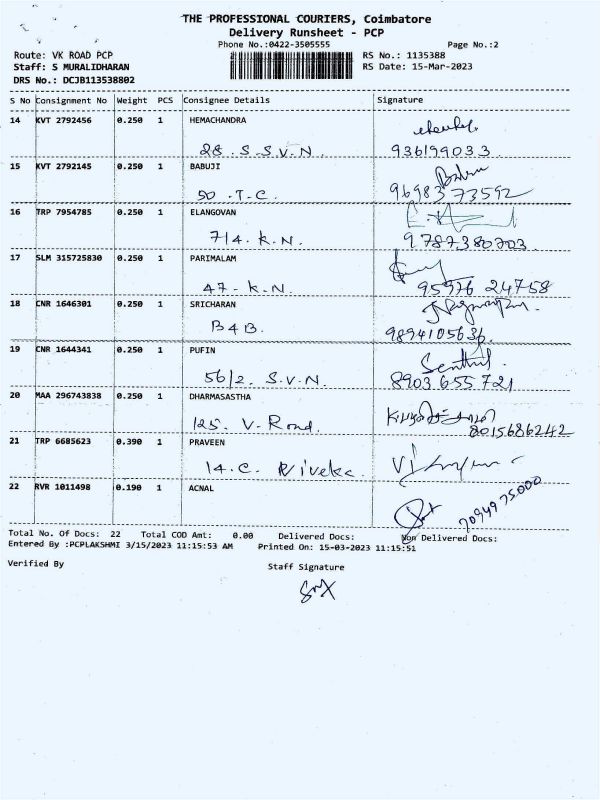 THE PROFESSIONAL COURIERS, Coimbatore
Delivery Runsheet - PCP
Phone No.:0422-3505555 Page No.:2
Route: VK ROAD PCP RS No.: 1135388
Staff: S MURALIDHARAN RS Date: 15-Mar-2023
DRS No.: DCJB113538802
S No Consignment No Weight PCS Consignee Details Signature
14 KVT 2792456 0.250 1 HEMACHANDRA
28. S.S.V.N. 936199033
15 KVT 2792145 0.250 1 BABUJI
50 .T.C. 9698373592
16 TRP 7954785 0.250 1 ELANGOVAN
714. K.N. 9787380703
17 SLM 315725830 0.250 1 PARIMALAM
47- K.N. 95976 24758
18 CNR 1646301 0.250 1 SRICHARAN
B4B. 9894105636
19 CNR 1644341 0.250 1 PUFIN Senthil
56/2. S.V.N. 8903655721
20 MAA 296743838 0.250 1 DHARMASASTHA
125. V. Road. 8015686242
21 TRP 6685623 0.390 1 PRAVEEN
14.C. Viveka.
22 RVR 1011498 0.190 1 ACNAL
7094975000
Total No. Of Docs: 22 Total COD Amt: 0.00 Delivered Docs: Non Delivered Docs:
Entered By :PCPLAKSHMI 3/15/2023 11:15:53 AM Printed On: 15-03-2023 11:15:51
Verified By Staff Signature